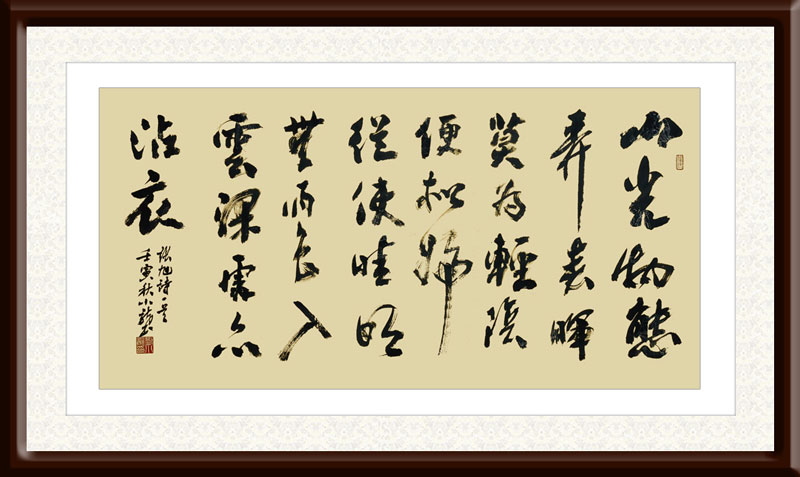 山光物態
弄春暉
莫為輕陰
便拟歸
縱使晴明
無雨色入
雲深處亦
沾衣
張旭詩一首
壬寅秋小龍书